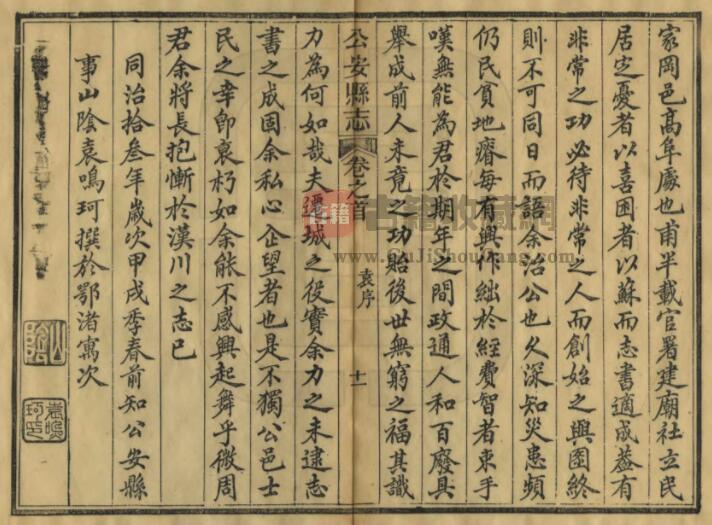 家岡邑高阜處也甫半載官署建廟社立民
居定憂者以喜困者以蘇而志書適成蓋有
非常之功必待非常之人而創始之與圖終
則不可同日而語余治公也久深知災患頻
仍民貧地瘠每有興作絀於經費智者束手
嘆無能為君於期年之間政通人和百廢具
舉成前人未竟之功貽後世無窮之福其識
公安縣志 卷之首 袁序 十一
力為何如哉夫遷城之役實余力之未逮志
書之成固余私心企望者也是不獨公邑士
民之幸即衰朽如余能不感興起舞乎微周
君余將長抱慚於漢川之志已
同治拾叁年歲次甲戌季春前知公安縣
事山陰袁鳴珂撰於鄂渚寓次
山陰
袁鳴珂印
古籍
古籍收藏网
www.GuJiShouCang.com